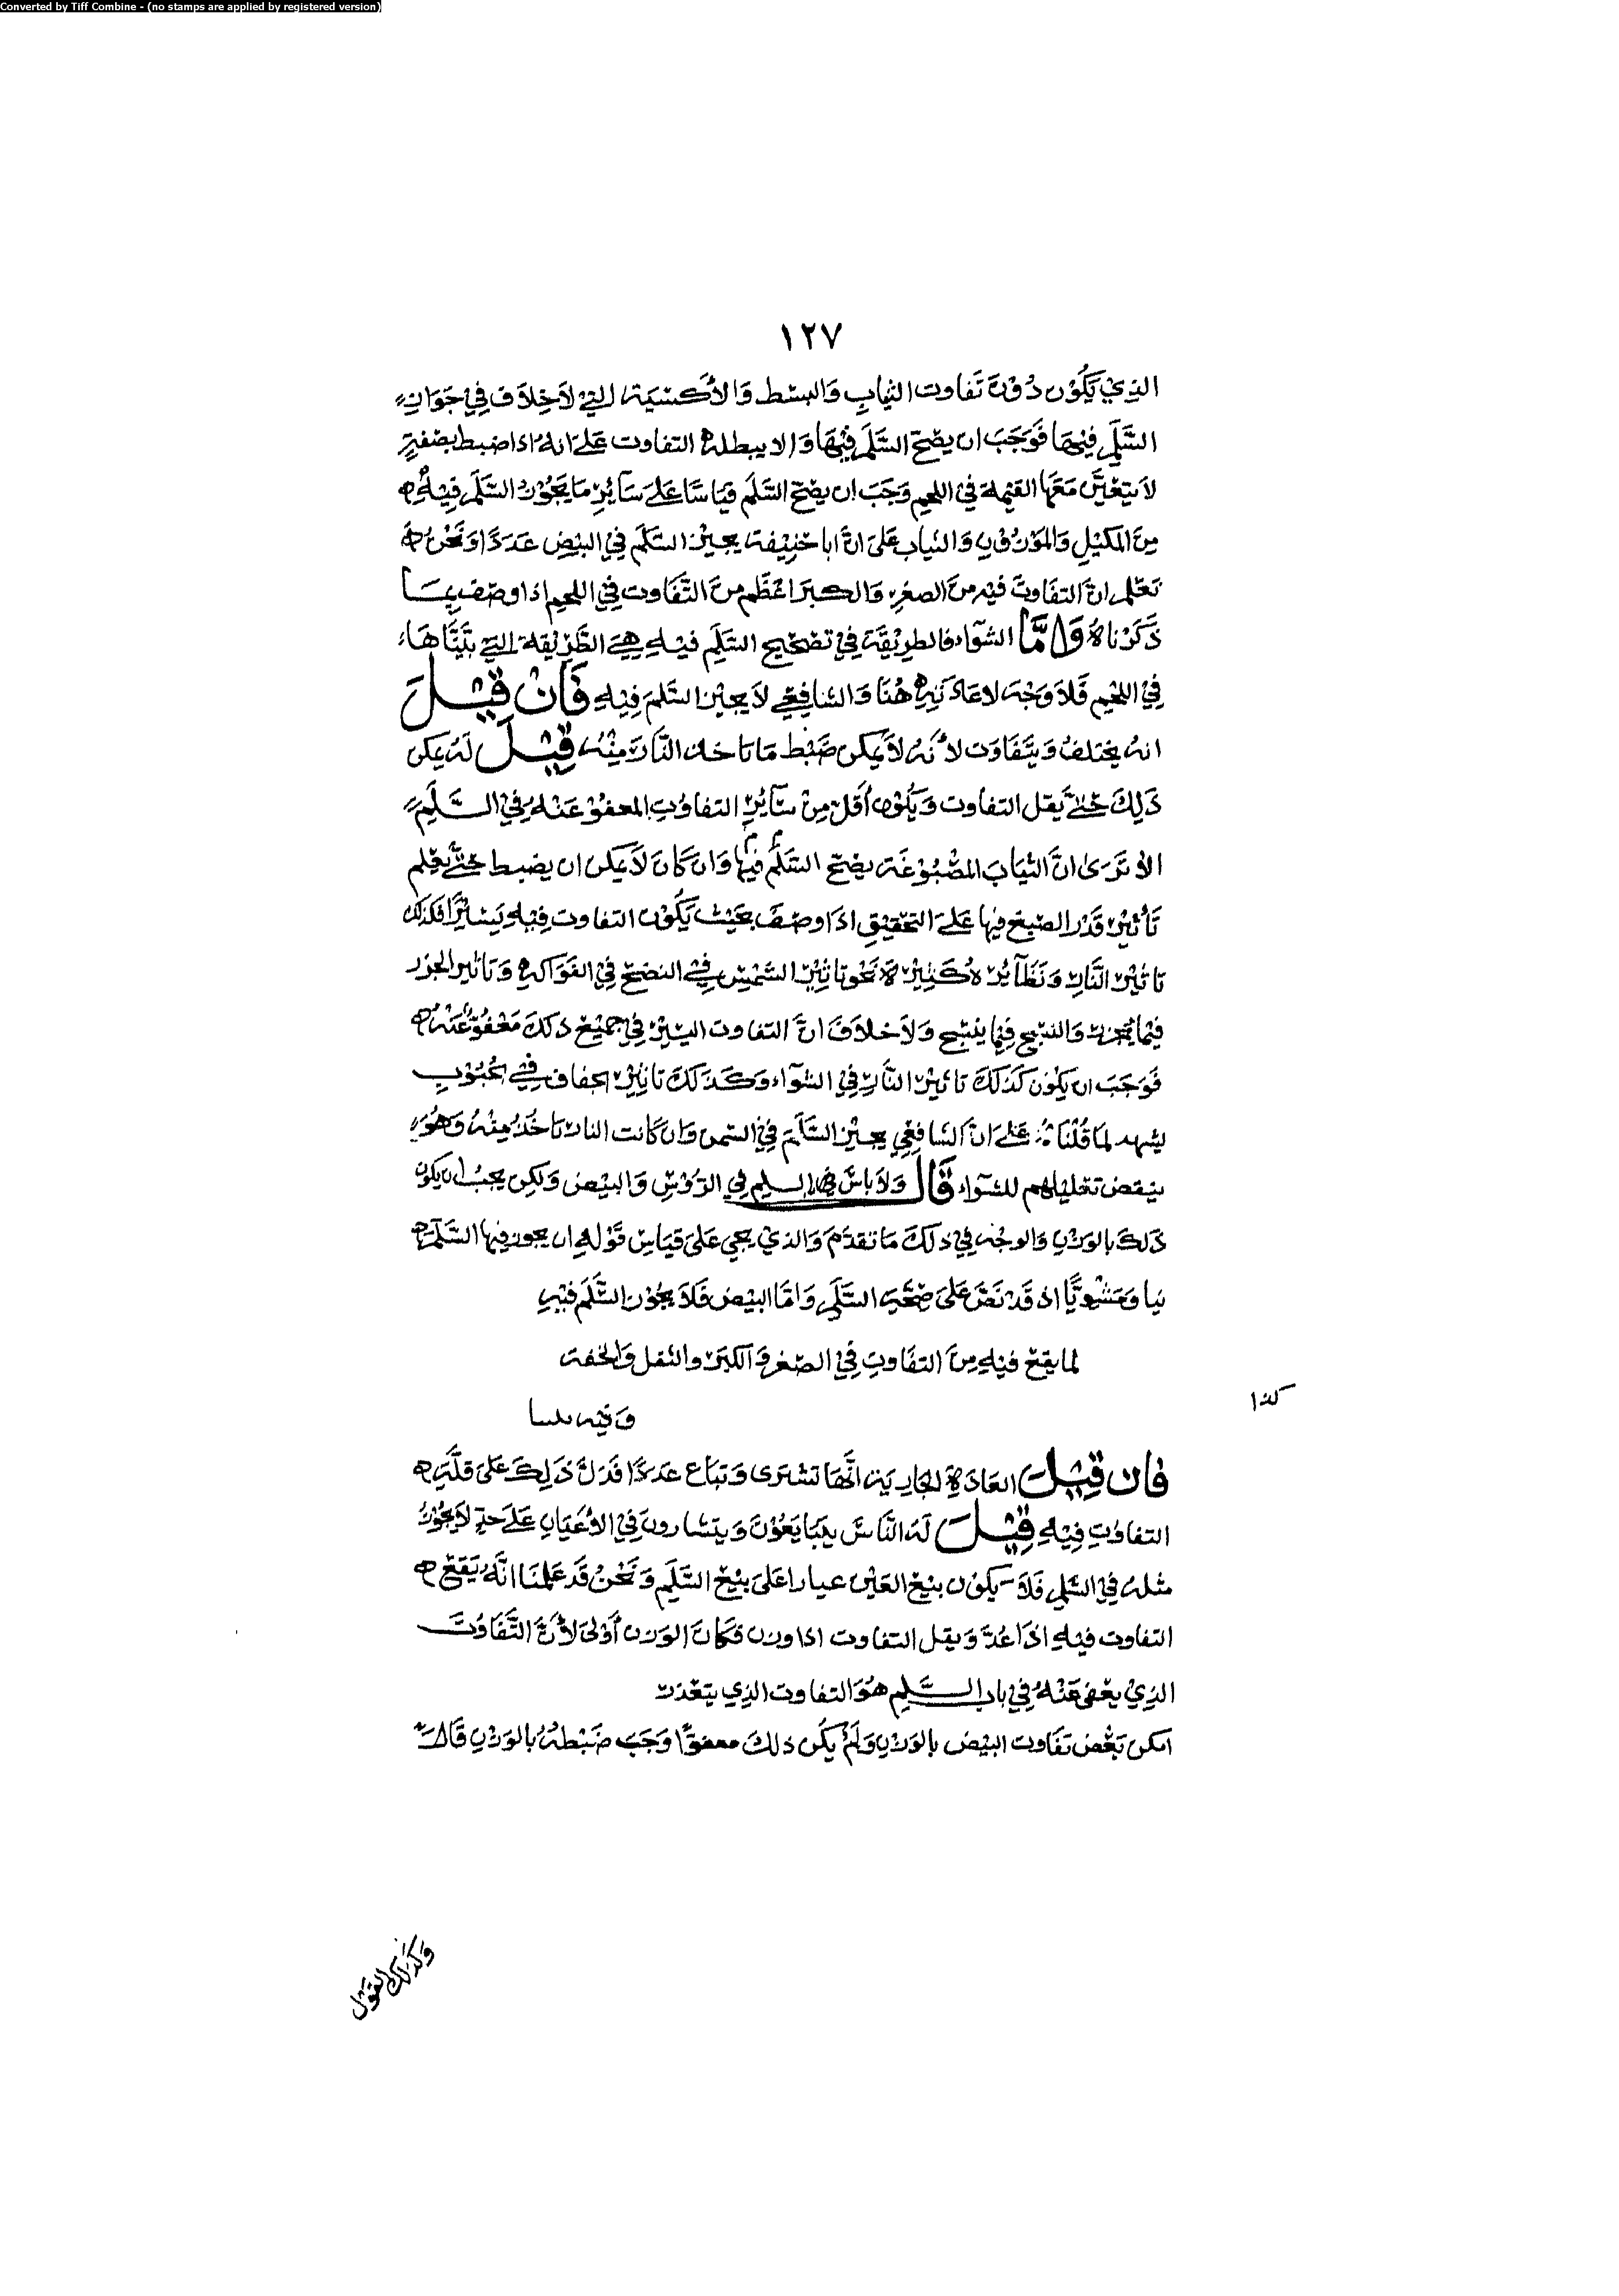 Converted by Tiff Combine - (no stamps are applied by registered version)
١٢٧
الذي يكون دون تفاوت الثياب والبسط والأكسية التي لا خلاف في جواز
السلم فيها فوجب ان يصح السلم فيها والا يبطله التفاوت على انه اذا ضبط بصفة
لا يتغير معها القيمة في اللحم وجب ان يصح السلم قياسًا على سائر ما يجوز السلم فيه
من المكيل والموزون والثياب على ان ابا حنيفة يجيز السلم في البيض عددًا ونحن
نعلم ان التفاوت فيه من الصغر والكبر اعظم من التفاوت في اللحم اذا وصف بما
ذكرناه واما الشواء فالطريقة في تصحيح السلم فيه هي الطريقة التي بيناها
في اللحم فلا وجه لاعادته هنا والشافعي لا يجيز السلم فيه فان قيل
انه يختلف ويتفاوت لأنه لا يمكن ضبط ما تاخذ النار منه قيل له يمكن
ذلك حتى يقل التفاوت ويكون أقل من سائر التفاوت المعفو عنه في السلم
الا ترى ان الثياب المصبوغة يصح السلم فيها وان كان لا يمكن ان يضبط حتى يعلم
تأثير قدر الصبغ فيها على التحقيق اذا وصف بحيث يكون التفاوت فيه يسيرًا فكذلك
تاثير النار ونظائره كثيرة نحو تاثير الشمس في النضج في الفواكه وتاثير الخرز
فيما يخرز والنسج فيما ينسج ولا خلاف ان التفاوت اليسير في جميع ذلك معفو عنه
فوجب ان يكون كذلك تاثير النار في الشواء وكذلك تاثير الجفاف في الحبوب
يشهد لما قلناه على ان الشافعي يجيز السلم في السمن وان كانت النار تاخذ منه وهو
ينقض تعليلهم للشواء قال ولا باس في السلم في الرؤس والبيض ولكن يجب ان يكون
ذلك بالوزن والوجه في ذلك ما تقدم والذي يجي على قياس قوله ان يجوز فيها السلم
نيا ومشويًا اذ قد نص على صحة السلم واما البيض فلا يجوز السلم فيه
لما يقع فيه من التفاوت في الصغر والكبر والثقل والخفة
كذا
وفيه
فان قيل العادة الجارية انها تشترى وتباع عددًا فدل ذلك على قلة
التفاوت فيه قيل له الناس يتبايعون ويتشارون في الأعيان على حد لا يجوز
مثله في السلم فلا يكون بيع العين عيارا على بيع السلم ونحن قد علمنا انه يقع
التفاوت فيه اذا عد ويقل التفاوت اذا وزن فكان الوزن أولى لأن التفاوت
الذي يعفى عنه في باب السلم هو التفاوت الذي يتعذر
امكن بعض تفاوت البيض بالوزن ولم يكن ذلك معفوًا وجب ضبطه بالوزن قال
وكذلك القول